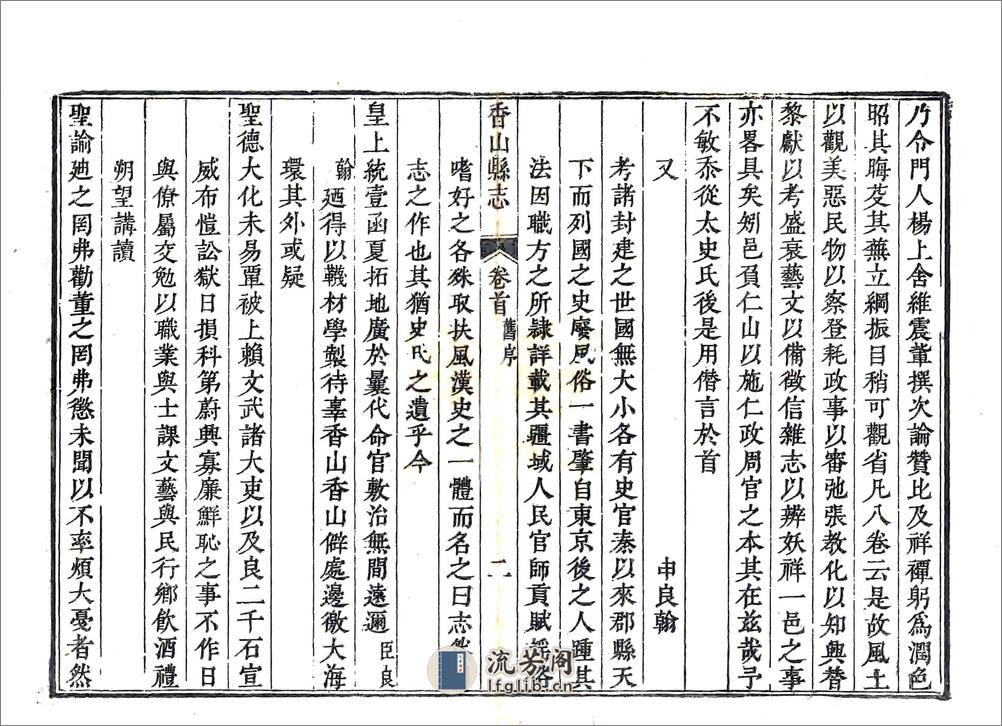 乃令門人楊上舍維震董撰次論贊比及祥禪躬為潤色
昭其晦芟其蕪立綱振目稍可觀省凡八卷云是故風土
以觀美惡民物以察登耗政事以審弛張教化以知興替
黎獻以考盛衰藝文以備徵信雜志以辨妖祥一邑之事
亦畧具矣矧邑負仁山以施仁政周官之本其在兹哉予
不敏忝從太史氏後是用僭言於首
又 申良翰
考諸封建之世國無大小各有史官秦以來郡縣天
下而列國之史廢風俗一書肇自東京後之人踵其
法因職方之所隸詳載其疆域人民官師貢賦謡俗
香山縣志 卷首 舊序 二
嗜好之各殊取扶風漢史之一體而名之曰志然
志之作也其猶史氏之遺乎今
皇上統壹函夏拓地廣於曩代命官敷治無間遠邇臣良
翰廼得以襪材學製待辜香山香山僻處邊徼大海
環其外或疑
聖德大化未易覃被上賴文武諸大吏以及良二千石宣
威布愷訟獄日損科第蔚興寡廉鮮恥之事不作日
與僚屬交勉以職業與士課文藝與民行鄉飲酒禮
朔望講讀
聖諭廸之罔弗勸董之罔弗懲未聞以不率煩大憂者然
流芳阁
lfglib.cn